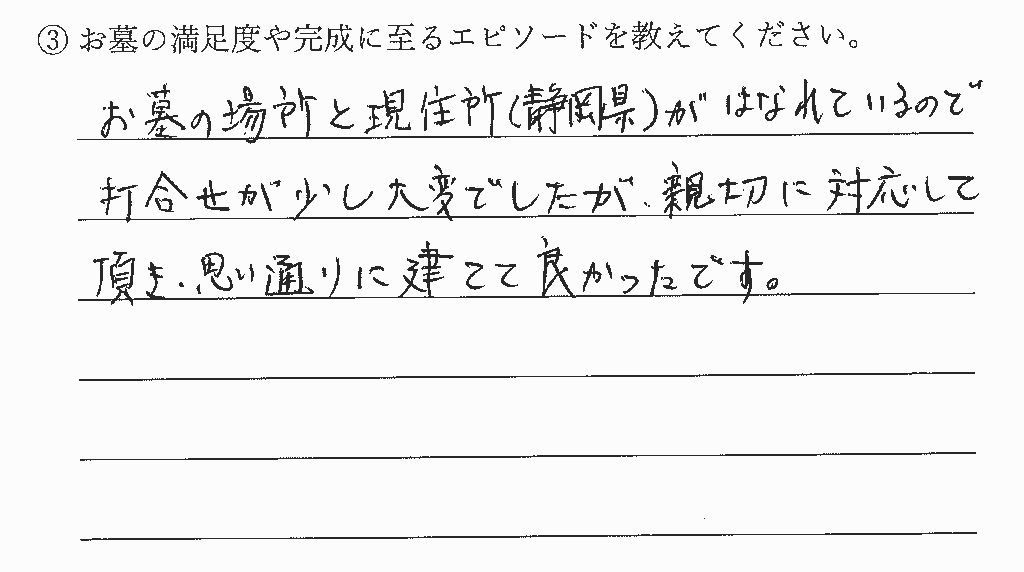 ③ お墓の満足度や完成に至るエピソードを教えてください。
お墓の場所と現住所(静岡県)がはなれているので
打合せが少し大変でしたが、親切に対応して
頂き、思い通りに建てて良かったです。